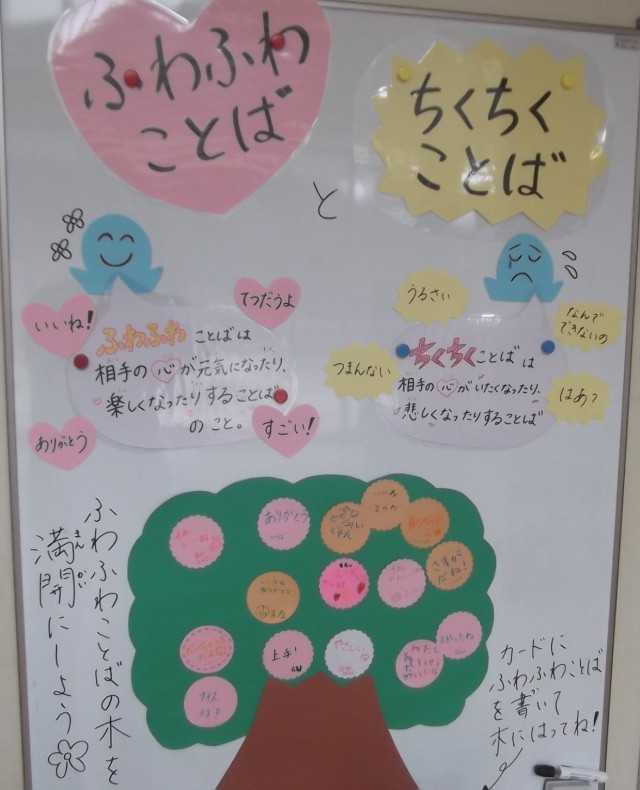 ふわふわ
ことば
と
ちくちく
ことば
いいね!
てつだうよ
ふわふわ ことばは
相手の心が元気になったり、
楽しくなったりすることば
のこと。
ありがとう
すごい!
うるさい
なんで
できないの
つまんない
はあ?
ちくちくことばは
相手の心がいたくなったり、
悲しくなったりすることば
ふわふわことばの木を
満開にしよう
まんかい
ありがとう
上手!
やさしいね
ナイス
カードに
ふわふわことば
を書いて
木にはってね!